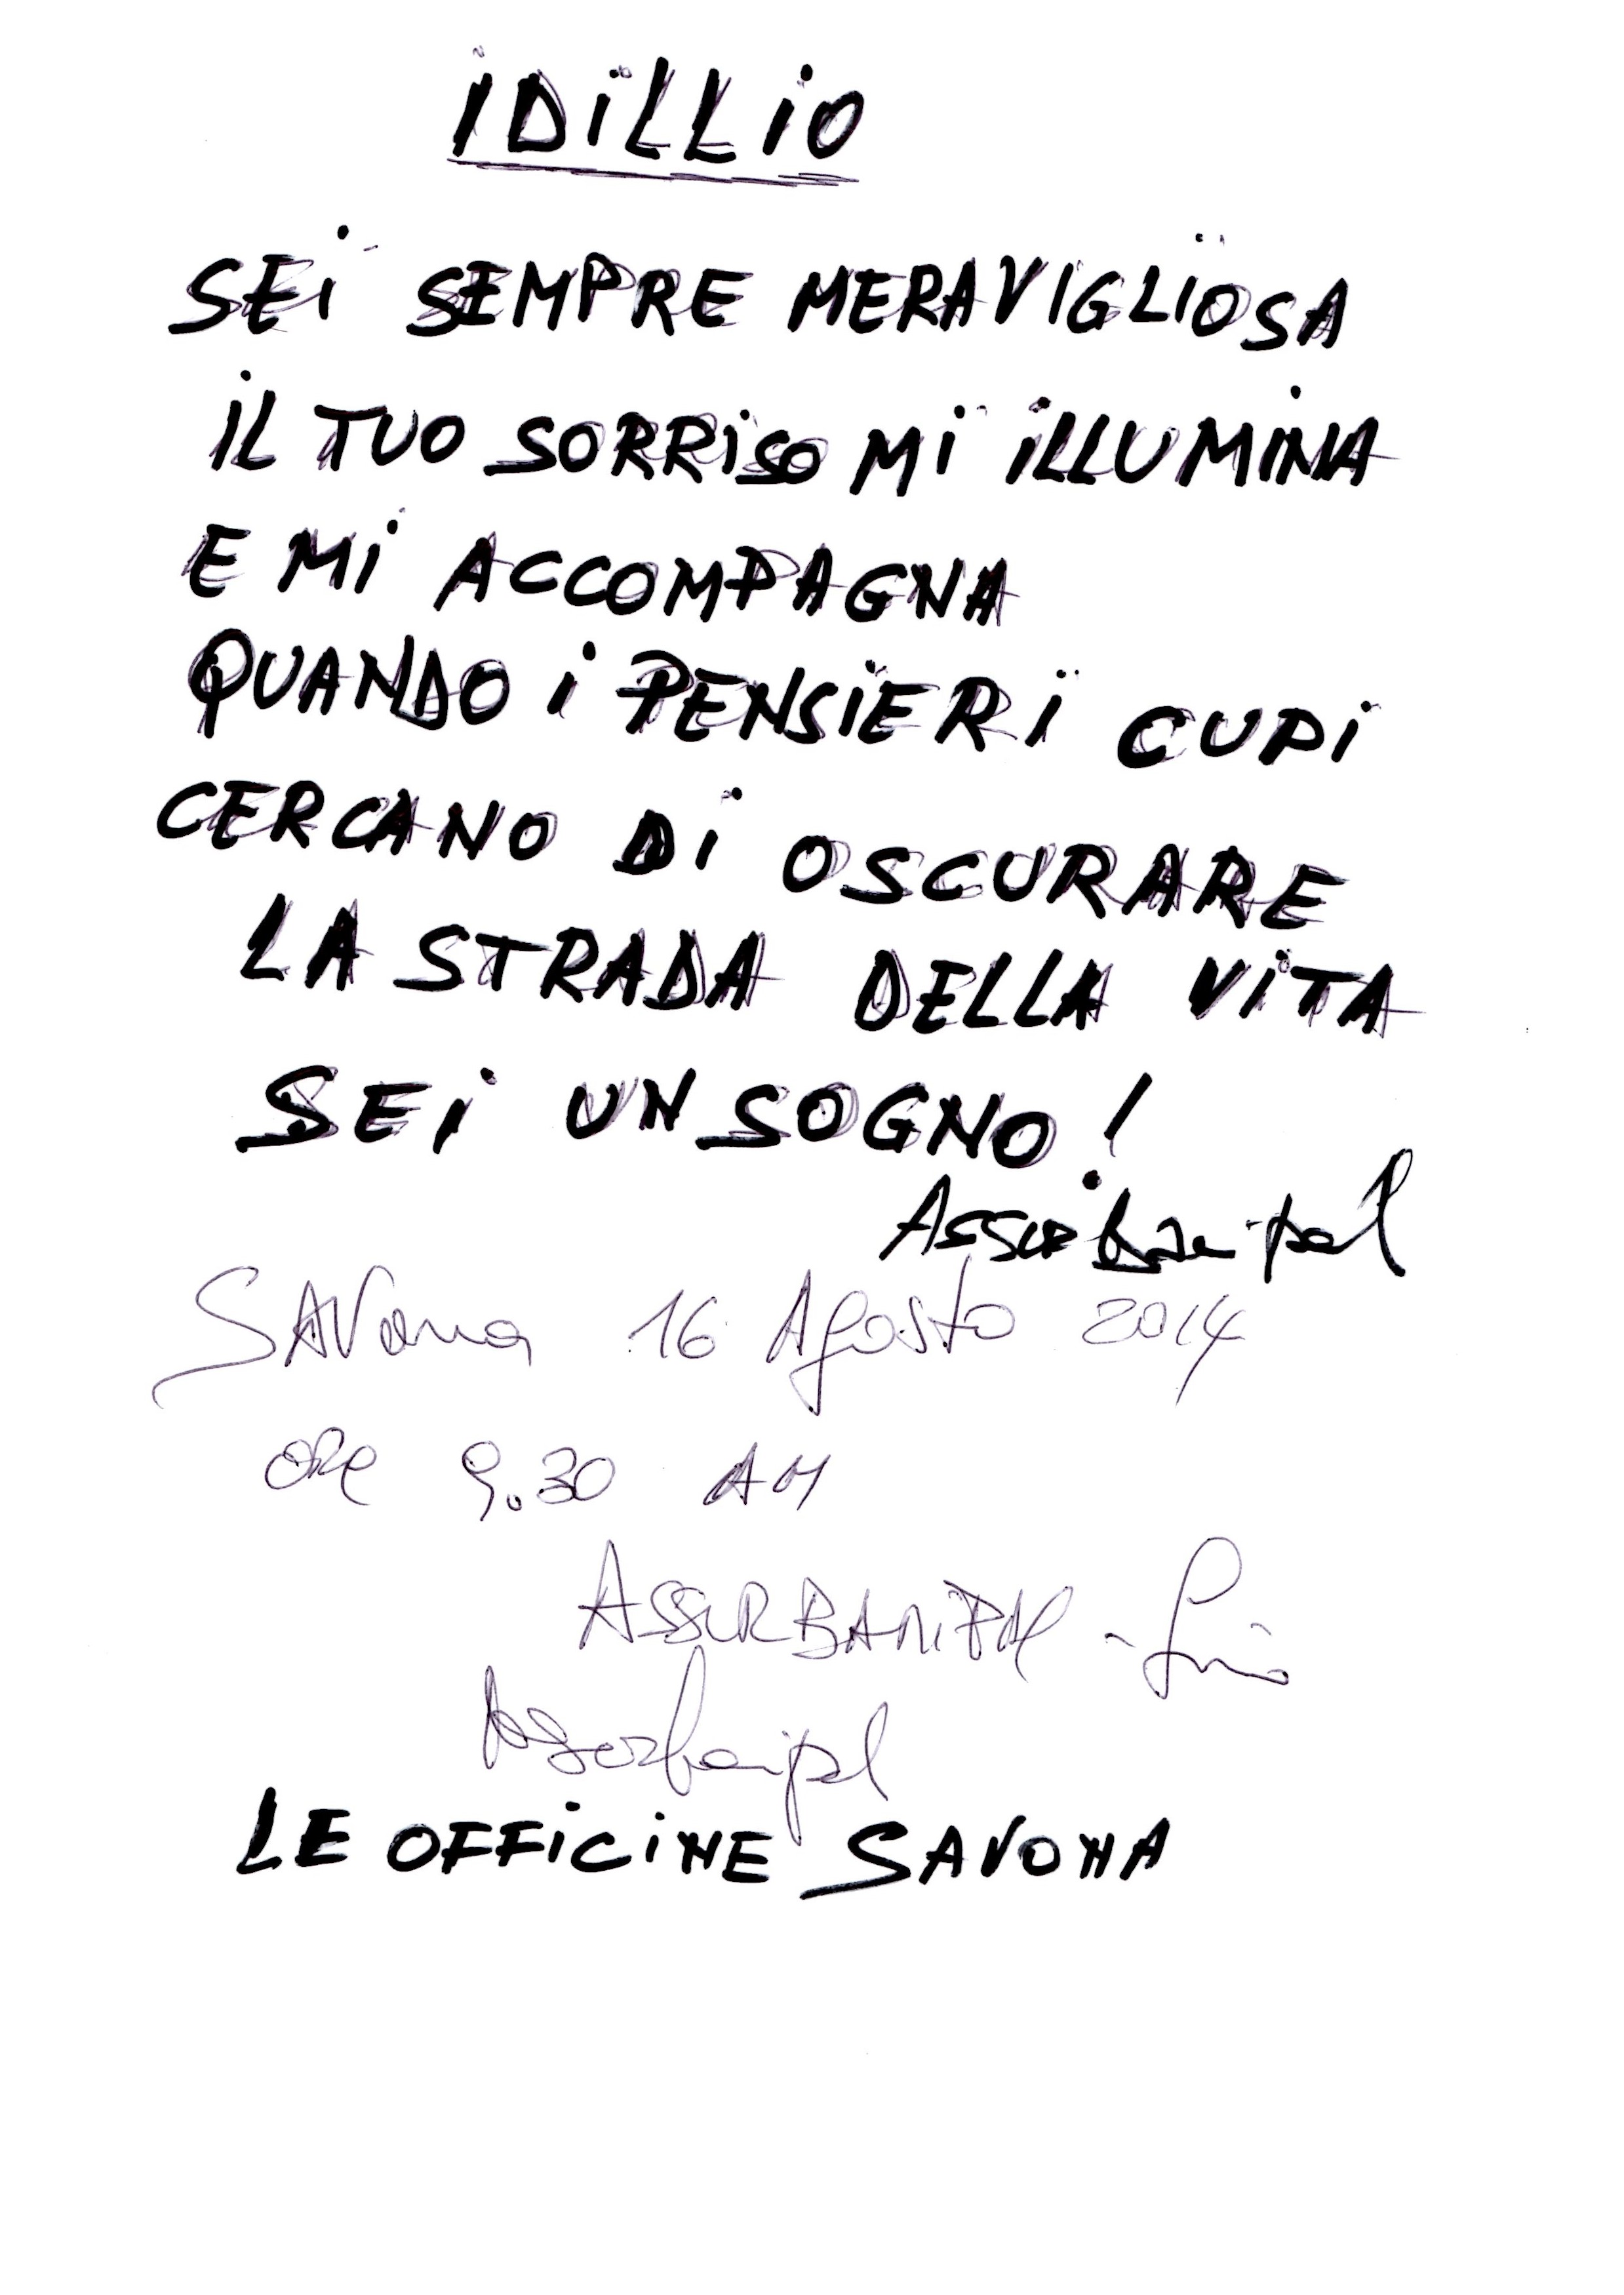 IDILLIO
SEI SEMPRE MERAVIGLIOSA
IL TUO SORRISO MI ILLUMINA
E MI ACCOMPAGNA
QUANDO I PENSIERI CUPI
CERCANO DI OSCURARE
LA STRADA DELLA VITA
SEI UN SOGNO!
Assurbanipal
SAVona 16 Agosto 2014
ORE 9.30 AM
ASSURBANIPAL -
Assurbanipal
LE OFFICINE SAVONA